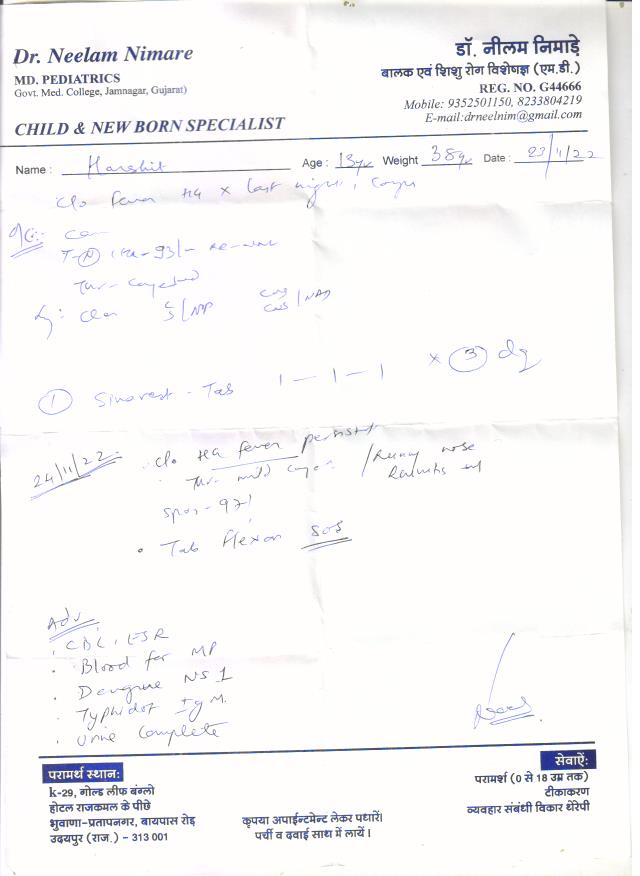 Dr. Neelam Nimare
MD. PEDIATRICS
Govt. Med. College, Jamnagar, Gujarat)
CHILD & NEW BORN SPECIALIST
डॉ. नीलम निमाड़े
बालक एवं शिशु रोग विशेषज्ञ (एम.डी.)
REG. NO. G44666
Mobile: 9352501150, 8233804219
E-mail:drneelnim@gmail.com
Name : Harshit Age : 13yr Weight 38 Date : 23/11/22
C/o fever HG x last night,
T-N
Chest
① Sinarest - Tab 1-1-1 x ③ dy
24/11/22 C/o HG fever persist
mild / Runny nose
Spo2-97%
• Tab Flexon SOS
Adv
• CBC, ESR
• Blood for MP
• Dengue NS1
• Typhidot IgM.
• Urine Complete
परामर्थ स्थान:
k-29, गोल्ड लीफ बंग्लो
होटल राजकमल के पीछे
भुवाणा-प्रतापनगर, बायपास रोड़
उदयपुर (राज.) - 313 001
कृपया अपाईन्टमेन्ट लेकर पधारें।
पर्ची व दवाई साथ में लायें।
सेवाऐं:
परामर्श (0 से 18 उम्र तक)
टीकाकरण
व्यवहार संबंधी विकार थेरेपी